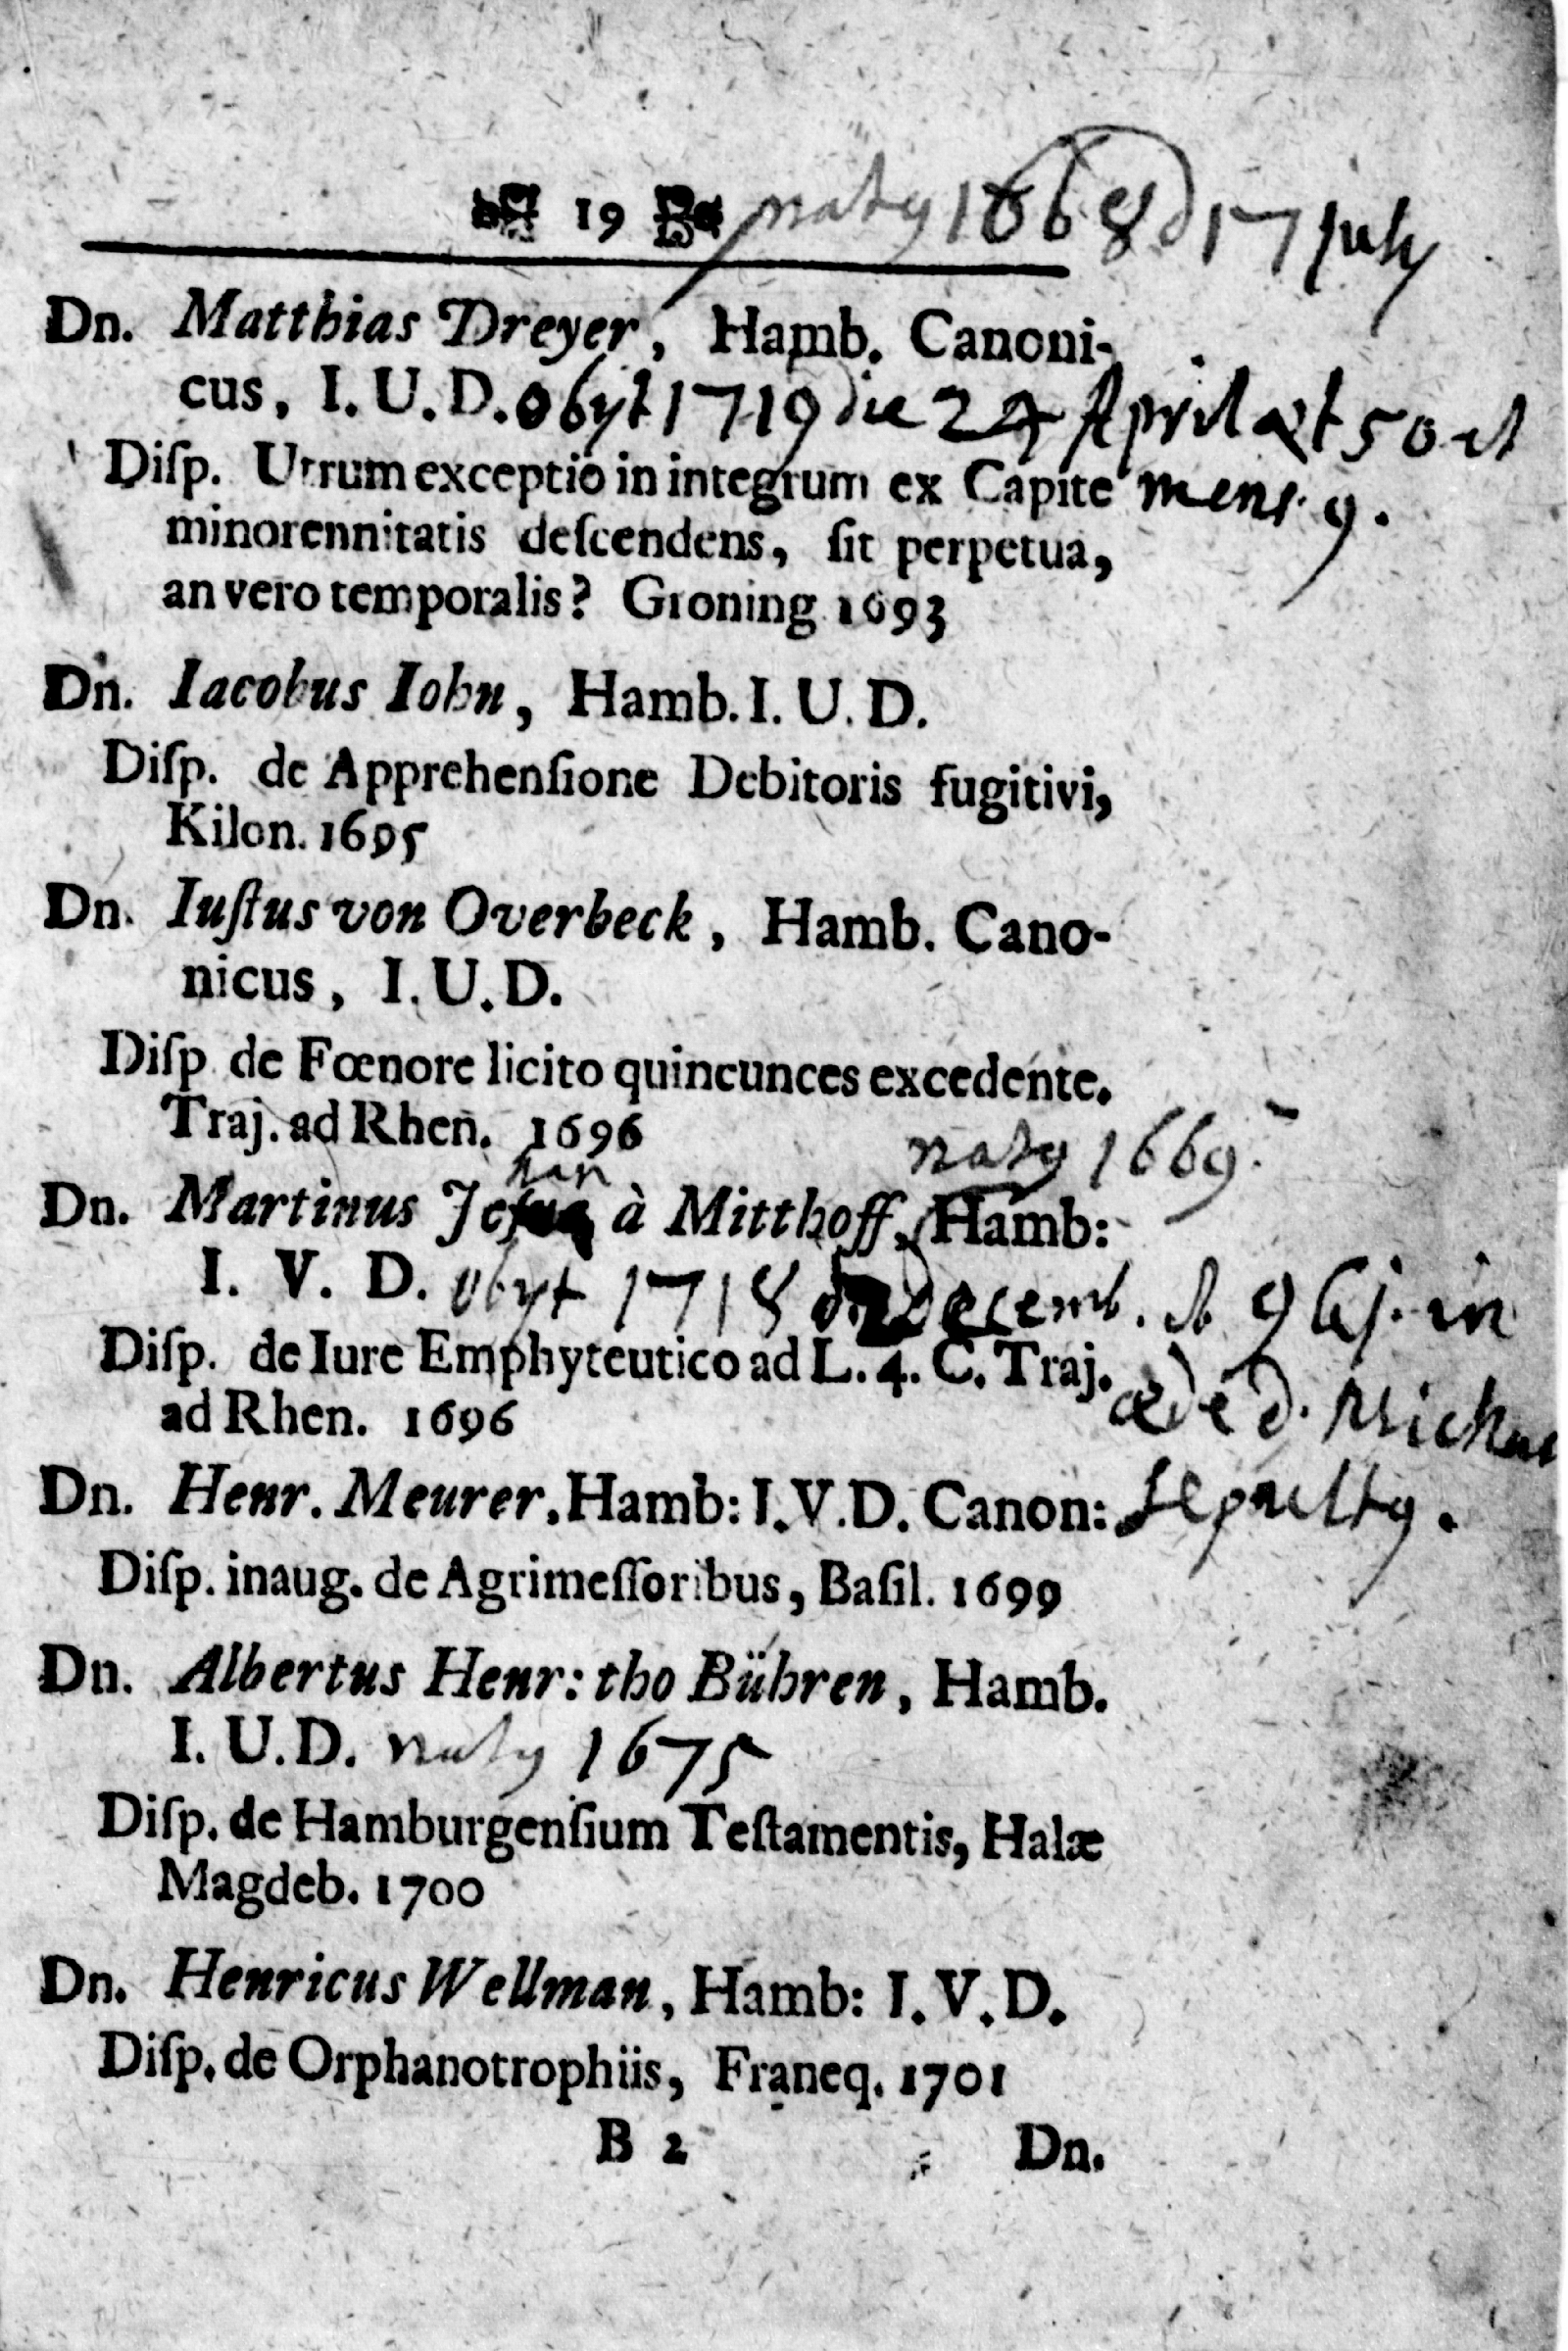 19 naty 1668 d 17 july
Dn. Matthias Dreyer, Hamb. Canoni-
cus, I. U. D. obyt 1719 die 24 April æt 50 et
Diſp. Utrum exceptio in integrum ex Capite mens. 9.
minorennitatis deſcendens, ſit perpetua,
an vero temporalis? Groning 1693
Dn. Iacobus Iohn, Hamb. I. U. D.
Diſp. de Apprehenſione Debitoris fugitivi,
Kilon. 1695
Dn. Iuſtus von Overbeck, Hamb. Cano-
nicus, I. U. D.
Diſp de Fœnore licito quincunces excedente.
Traj. ad Rhen. 1696 naty 1669.
Dn. Martinus à Mitthoff, Hamb:
I. V. D. obyt 1718 Decemb. in
Diſp. de Iure Emphyteutico ad L. 4. C. Traj. æde d.
ad Rhen. 1696
Dn. Henr. Meurer. Hamb: I. V. D. Canon: sepulty.
Diſp. inaug. de Agrimeſſoribus, Baſil. 1699
Dn. Albertus Henr: tho Bühren, Hamb.
I. U. D. naty 1675
Diſp. de Hamburgenſium Teſtamentis, Halæ
Magdeb. 1700
Dn. Henricus Wellman, Hamb: I. V. D.
Diſp. de Orphanotrophiis, Franeq. 1701
B 2 Dn.